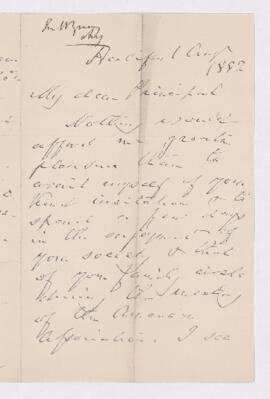 Halifax 1 Augt
1882
My dear Principal
Nothing would
afford me greater
pleasure than to
avail myself of your
kind invitation & to
spend a few days
in the enjoyment of
your society & that
of your family circle
during the meeting
of the American
Association. I see